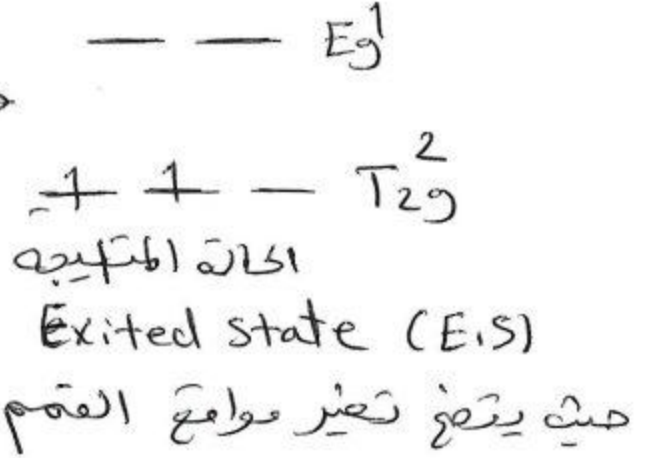 — — Eg¹
1 1 — T2g²
الحالة المتهيجه
Exited state (E.S)
حيث يتضح تغير مواقع القمم